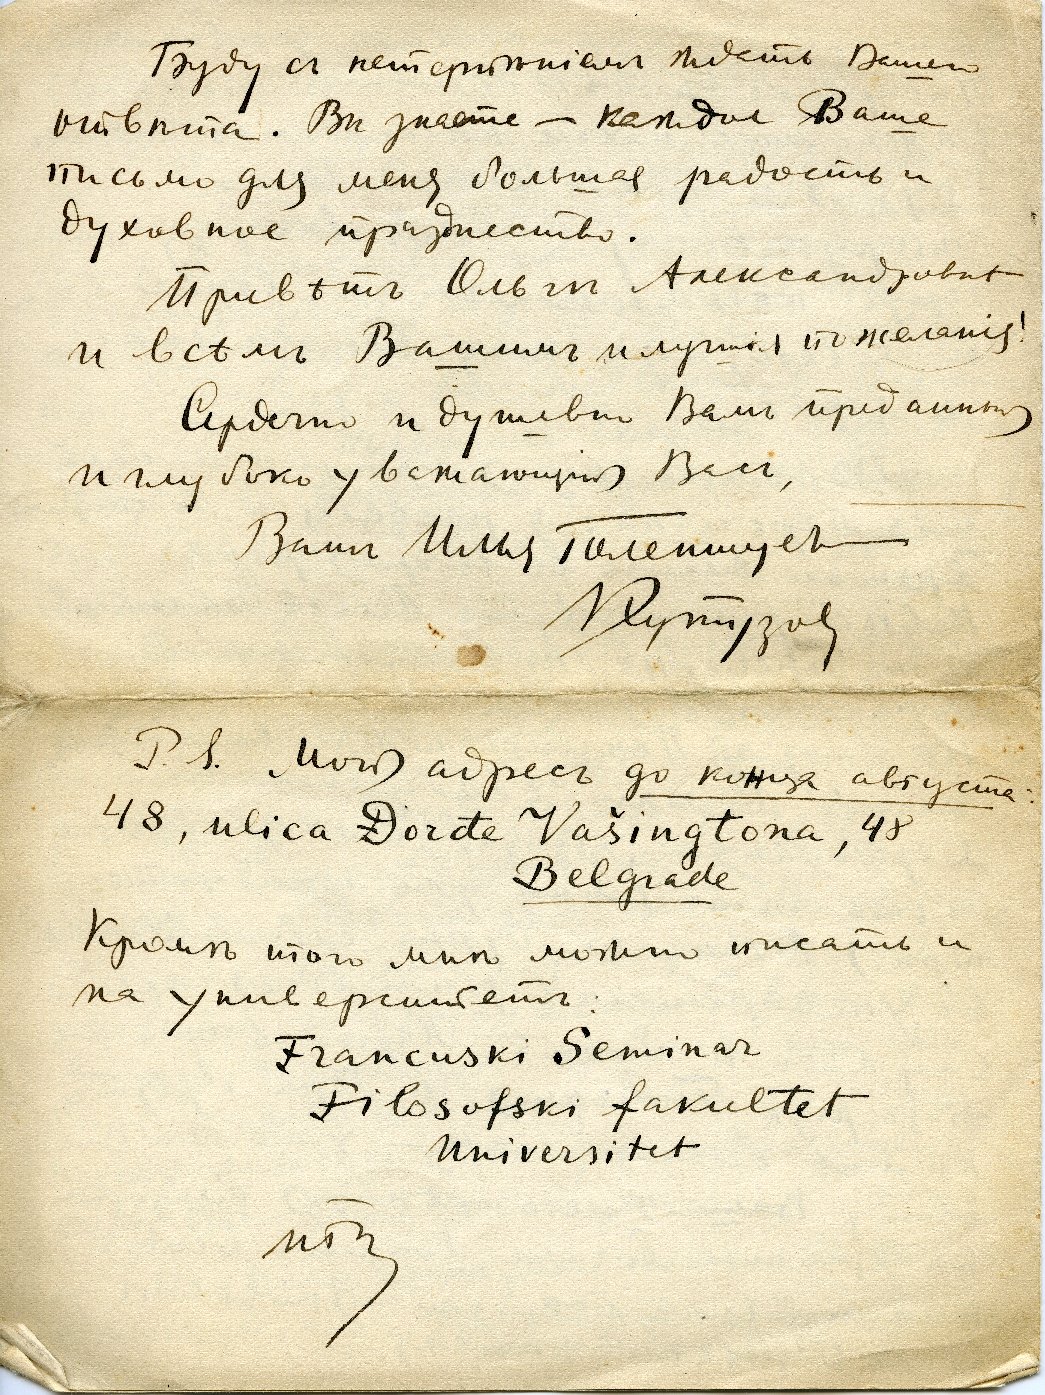 Буду съ нетерпѣніемъ ждать Вашего
отвѣта. Вы знаете — каждое Ваше
письмо для меня большая радость и
духовное празднество.
Привѣтъ Ольгѣ Александровнѣ
и всѣмъ Вашимъ и лучшія пожеланія!
Сердечно и душевно Вамъ преданный
и глубоко уважающій Васъ,
Вашъ Илья Голенищев
Кутузовъ
P.S. Мой адресъ до конца августа:
48, ulica Đorđe Vašingtona, 48
Belgrade
Кромѣ того мнѣ можно писать и
на университетъ:
Francuski Seminar
Filosofski fakultet
Universitet